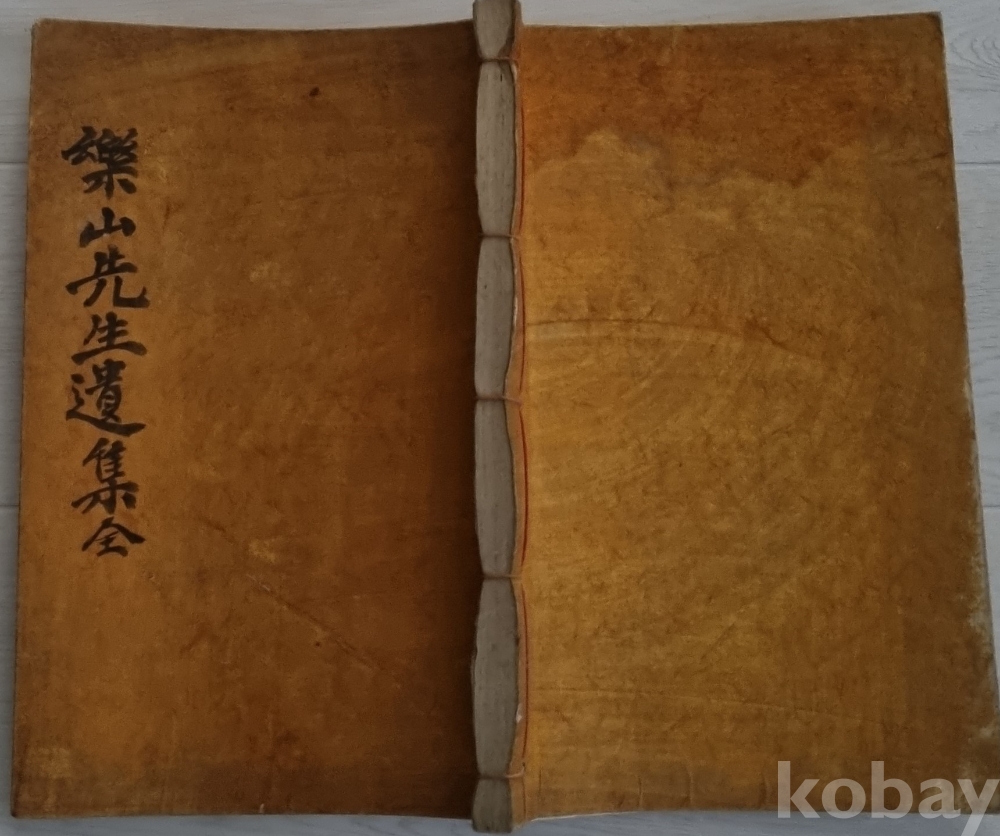 樂山先生遺集全
kobay